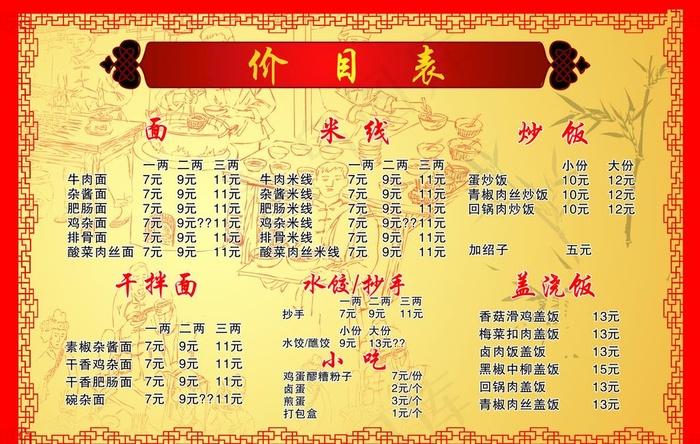 价目表
面
一两 二两 三两
牛肉面 7元 9元 11元
杂酱面 7元 9元 11元
肥肠面 7元 9元 11元
鸡杂面 7元 9元??11元
排骨面 7元 9元 11元
酸菜肉丝面 7元 9元 11元
米线
一两 二两 三两
牛肉米线 7元 9元 11元
杂酱米线 7元 9元 11元
肥肠米线 7元 9元 11元
鸡杂米线 7元 9元??11元
排骨米线 7元 9元 11元
酸菜肉丝米线 7元 9元 11元
炒饭
小份 大份
蛋炒饭 10元 12元
青椒肉丝炒饭 10元 12元
回锅肉炒饭 10元 12元
加绍子 五元
干拌面
一两 二两 三两
素椒杂酱面 7元 9元 11元
干香鸡杂面 7元 9元 11元
干香肥肠面 7元 9元 11元
碗杂面 7元 9元??11元
水饺/抄手
一两 二两 三两
抄手 7元 9元 11元
小份 大份
水饺/蘸饺 9元 13元??
小吃
鸡蛋醪糟粉子 7元/份
卤蛋 2元/个
煎蛋 3元/个
打包盒 1元/个
盖浇饭
香菇滑鸡盖饭 13元
梅菜扣肉盖饭 13元
卤肉饭盖饭 13元
黑椒中柳盖饭 15元
回锅肉盖饭 13元
青椒肉丝盖饭 13元